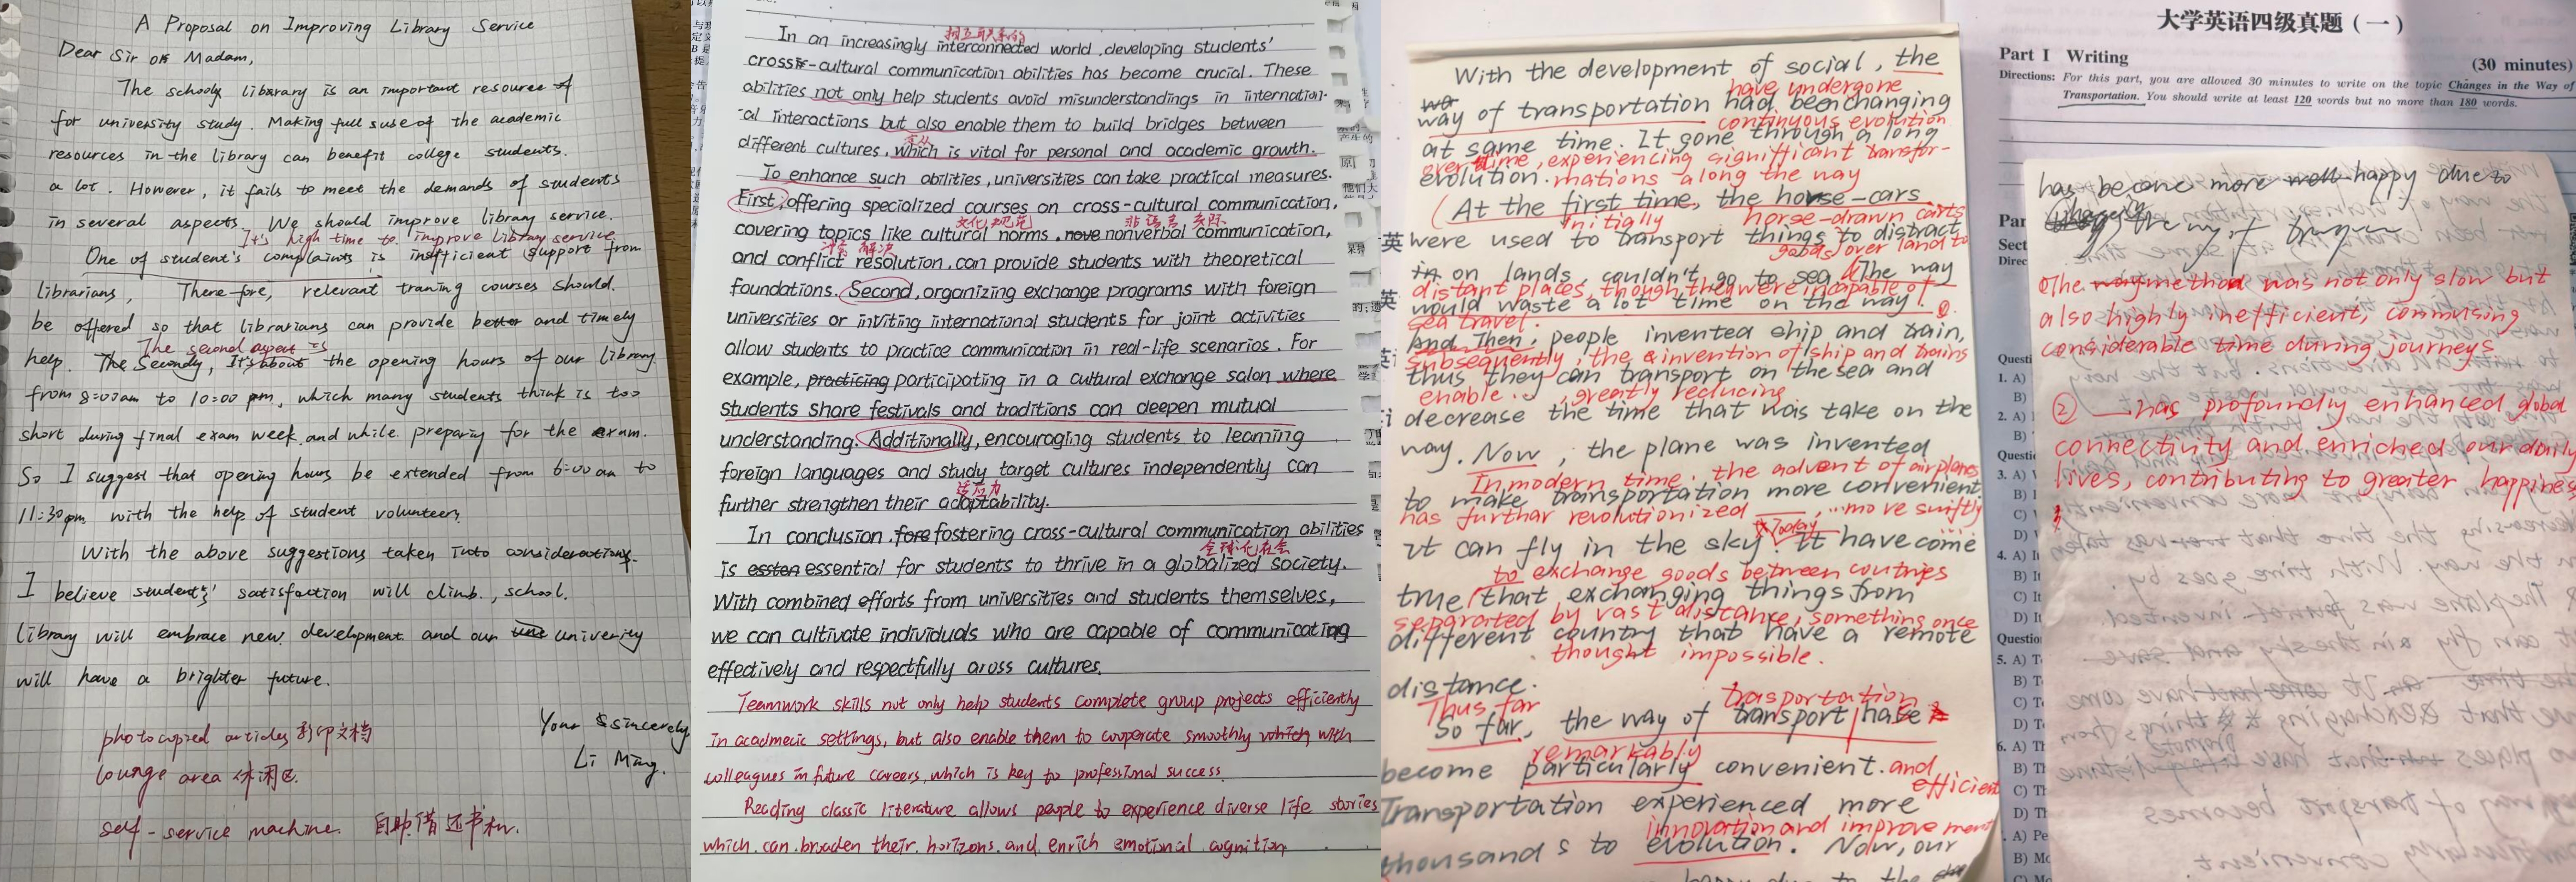 A Proposal on Improving Library Service
Dear Sir or Madam,
The school library is an important resource
for university study. Making full use of the academic
resources in the library can benefit college students.
a lot. However, it fails to meet the demands of students
in several aspects. We should improve library service.
It's high time to improve library service
One of student's complaints is insufficient support from
librarians, There fore, relevant traning courses should.
be offered so that librarians can provide better and timely
The second aspect is
help. The Secondly, It's about the opening hours of our library
from 8:00am to 10:00 pm, which many students think is too
short during final exam week and while preparing for the exam.
So I suggest that opening hours be extended from 6:00 am to
11:30pm with the help of student volunteers.
With the above suggestions taken into considerations.
I believe students' satisfaction will climb, school.
library will embrace new development and our univerity
will have a brighter future.
Your Sincerely
Li Ming.
photocopied articles 影印文档
lounge area 休闲区.
self-service machine. 自助借还书机.
相互联系的
In an increasingly interconnected world, developing students'
cross-cultural communication abilities has become crucial. These
abilities not only help students avoid misunderstandings in internation-
-al interactions but also enable them to build bridges between
different cultures, which is vital for personal and academic growth.
To enhance such abilities, universities can take practical measures.
First, offering specialized courses on cross-cultural communication,
文化规范 非语言交际
covering topics like cultural norms, nove nonverbal communication,
冲突 解决
and conflict resolution, can provide students with theoretical
foundations. Second, organizing exchange programs with foreign
universities or inviting international students for joint activities
allow students to practice communication in real-life scenarios. For
example, practicing participating in a cultural exchange salon where
students share festivals and traditions can deepen mutual
understanding. Additionally, encouraging students to learning
foreign languages and study target cultures independently can
适应力
further strengthen their adaptability.
In conclusion, fore fostering cross-cultural communication abilities
全球化社会
is essten essential for students to thrive in a globalized society.
With combined efforts from universities and students themselves,
we can cultivate individuals who are capable of communicating
effectively and respectfully aross cultures.
Teamwork skills not only help students complete group projects efficiently
in acadmeic settings, but also enable them to cooperate smoothly with
colleagues in future careers, which is key to professional success.
Reading classic literature allows people to experience diverse life stories
which can broaden their horizons and enrich emotional cognition
With the development of social, the
have undergone
way of transportation had been changing
continuous evolution
at same time. It gone through a long
over time, experiencing significant transfor-
evolution. mations along the way
At the first time, the horse-cars
Initially horse-drawn carts
were used to transport things to distract
goods over land to
in on lands, couldn't go to sea. The way
distant places, though they were incapable of
would waste a lot time on the way. ①
sea travel.
And Then, people invented ship and train,
Subsequently, the invention of ship and trains
thus they can transport on the sea and
enable , greatly reducing
decrease the time that was take on the
way. Now, the plane was invented
In modern time, the advent of airplanes
to make transportation more convenient
has further revolutionized ___, ... move swiftly
Today
it can fly in the sky. It have come
to exchange goods between coutries
true that exchanging things from
separated by vast distance, something once
different country that have a remote
thought impossible.
distance.
Thus far transportation
So far, the way of transport have
remarkably
become particularly convenient. and
efficient
Transportation experienced more
innovation and improvement
thousands to evolution. Now, our
大学英语四级真题（一）
Part I Writing
(30 minutes)
Directions: For this part, you are allowed 30 minutes to write on the topic Changes in the Way of
Transportation. You should write at least 120 words but no more than 180 words.
has become more happy due to
the way of
①The method was not only slow but
also highly inefficient, comusing
considerable time during journeys
② ___ has profoundly enhanced global
connectivity and enriched our daily
lives, contributing to greater happiness